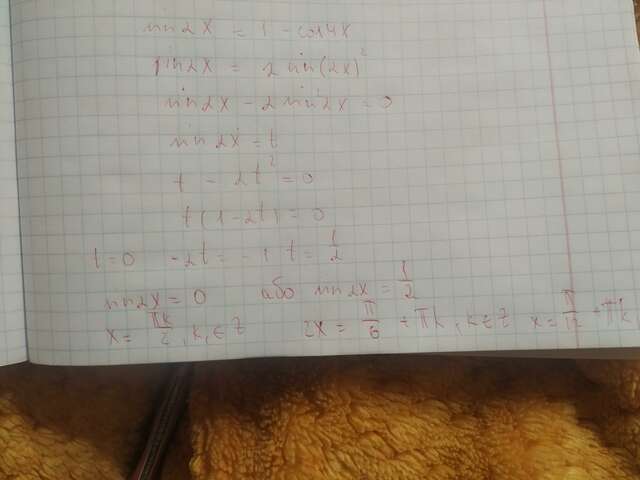 sin 2x = 1 - cos 4x
sin 2x = 2 sin(2x)²
sin 2x - 2 sin² 2x = 0
sin 2x = t
t - 2t² = 0
t(1-2t) = 0
t=0 -2t = -1 t = 1/2
sin 2x = 0 або sin 2x = 1/2
x = πk/2, k ∈ Z 2x = π/6 + πk, k ∈ Z x = π/12 + πk,